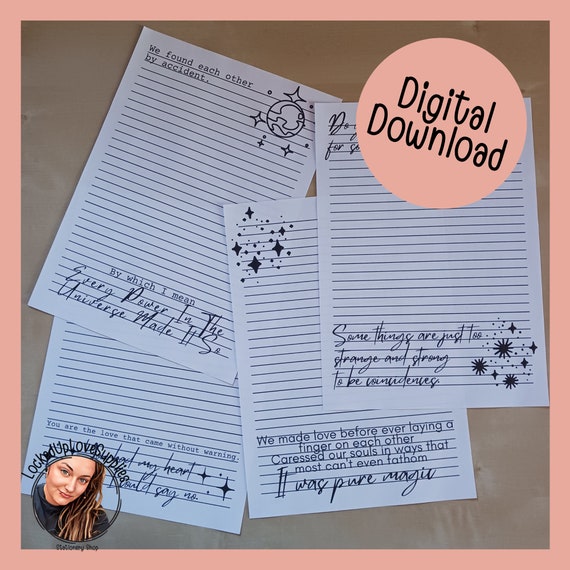 We found each other
by accident.
By which I mean
Every Power In The
Universe Made It So
Digital
Download
Do
for
Some things are just too
strange and strong
to be coincidences.
You are the love that came without warning.
had my heart
could say no.
We made love before ever laying a
finger on each other
Caressed our souls in ways that
most can't even fathom
It was pure magic
LockedUpLoveSupplies
Stationery Shop